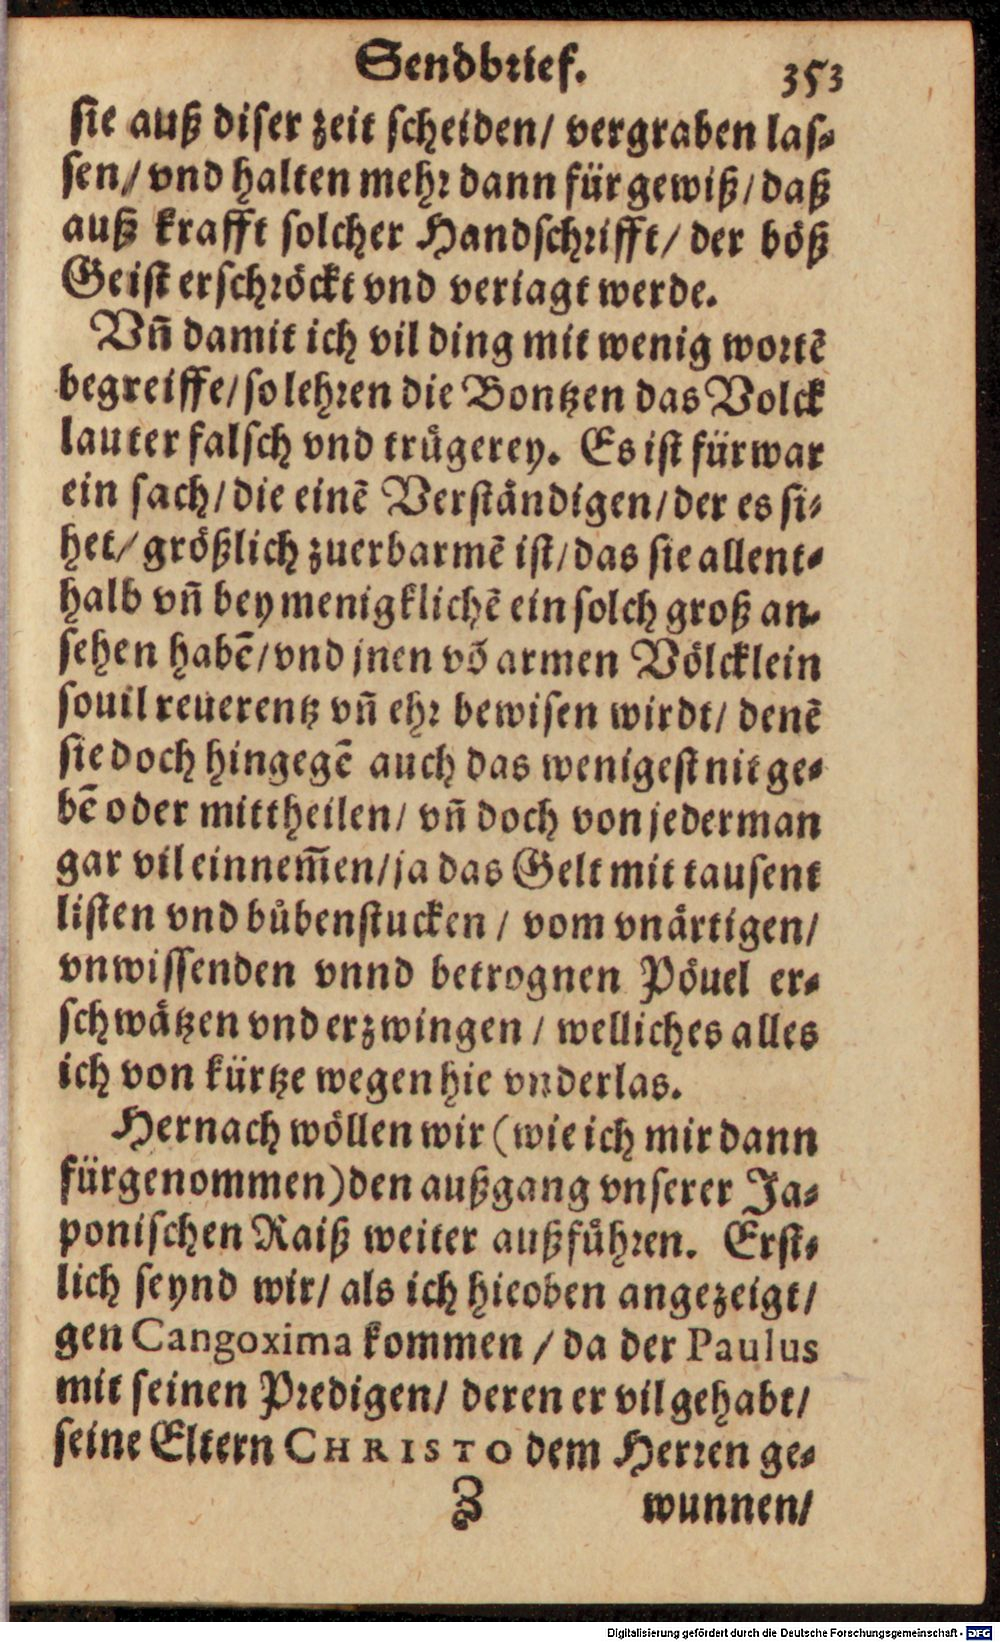 Sendbrief. 353
sie auß diser zeit scheiden/ vergraben las-
sen/ vnd halten mehr dann für gewiß/ daß
auß krafft solcher Handschrifft/ der böß
Geist erschröckt vnd veriagt werde.
Vñ damit ich vil ding mit wenig wortẽ
begreiffe/ so lehren die Bontzen das Volck
lauter falsch vnd trůgerey. Es ist fürwar
ein sach/ die einẽ Verständigen/ der es si-
het/ größlich zuerbarmẽ ist/ das sie allent-
halb vñ bey menigklichẽ ein solch groß an-
sehen habẽ/ vnd jnen võ armen Völcklein
souil reuerentz vñ ehr bewisen wirdt/ denẽ
sie doch hingegẽ auch das wenigest nit ge-
bẽ oder mittheilen/ vñ doch von jederman
gar vil einnem̃en/ ja das Gelt mit tausent
listen vnd bůbenstucken / vom vnärtigen/
vnwissenden vnnd betrognen Pöuel er-
schwätzen vnd erzwingen / welliches alles
ich von kürtze wegen hie vnderlas.
Hernach wöllen wir (wie ich mir dann
fürgenommen) den außgang vnserer Ja-
ponischen Raiß weiter außführen. Erst-
lich seynd wir/ als ich hieoben angezeigt/
gen Cangoxima kommen / da der Paulus
mit seinen Predigen/ deren er vil gehabt/
seine Eltern CHRISTO dem Herren ge-
Z wunnen/
Digitalisierung gefördert durch die Deutsche Forschungsgemeinschaft - DFG